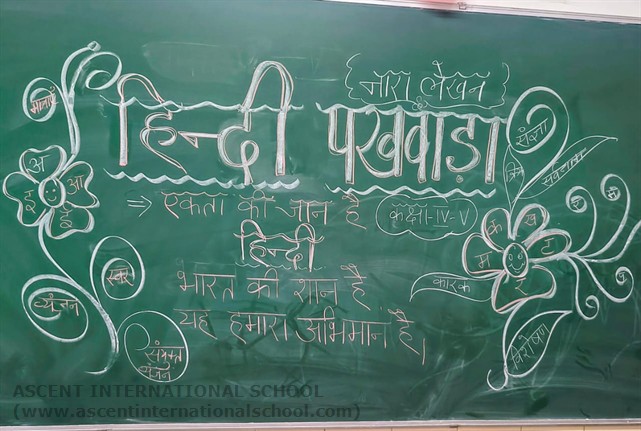 नारा लेखन
हिन्दी पखवाड़ा
⇒ एकता की जान है
कक्षा-IV-V
हिन्दी
भारत की शान है
यह हमारा अभिमान है।
मात्राएँ
अ
आ
इ
ई
स्वर
व्यंजन
संयुक्त
व्यंजन
संज्ञा
सर्वनाम
क
ख
ट
र
म
कारक
विशेषण
ASCENT INTERNATIONAL SCHOOL
(www.ascentinternationalschool.com)